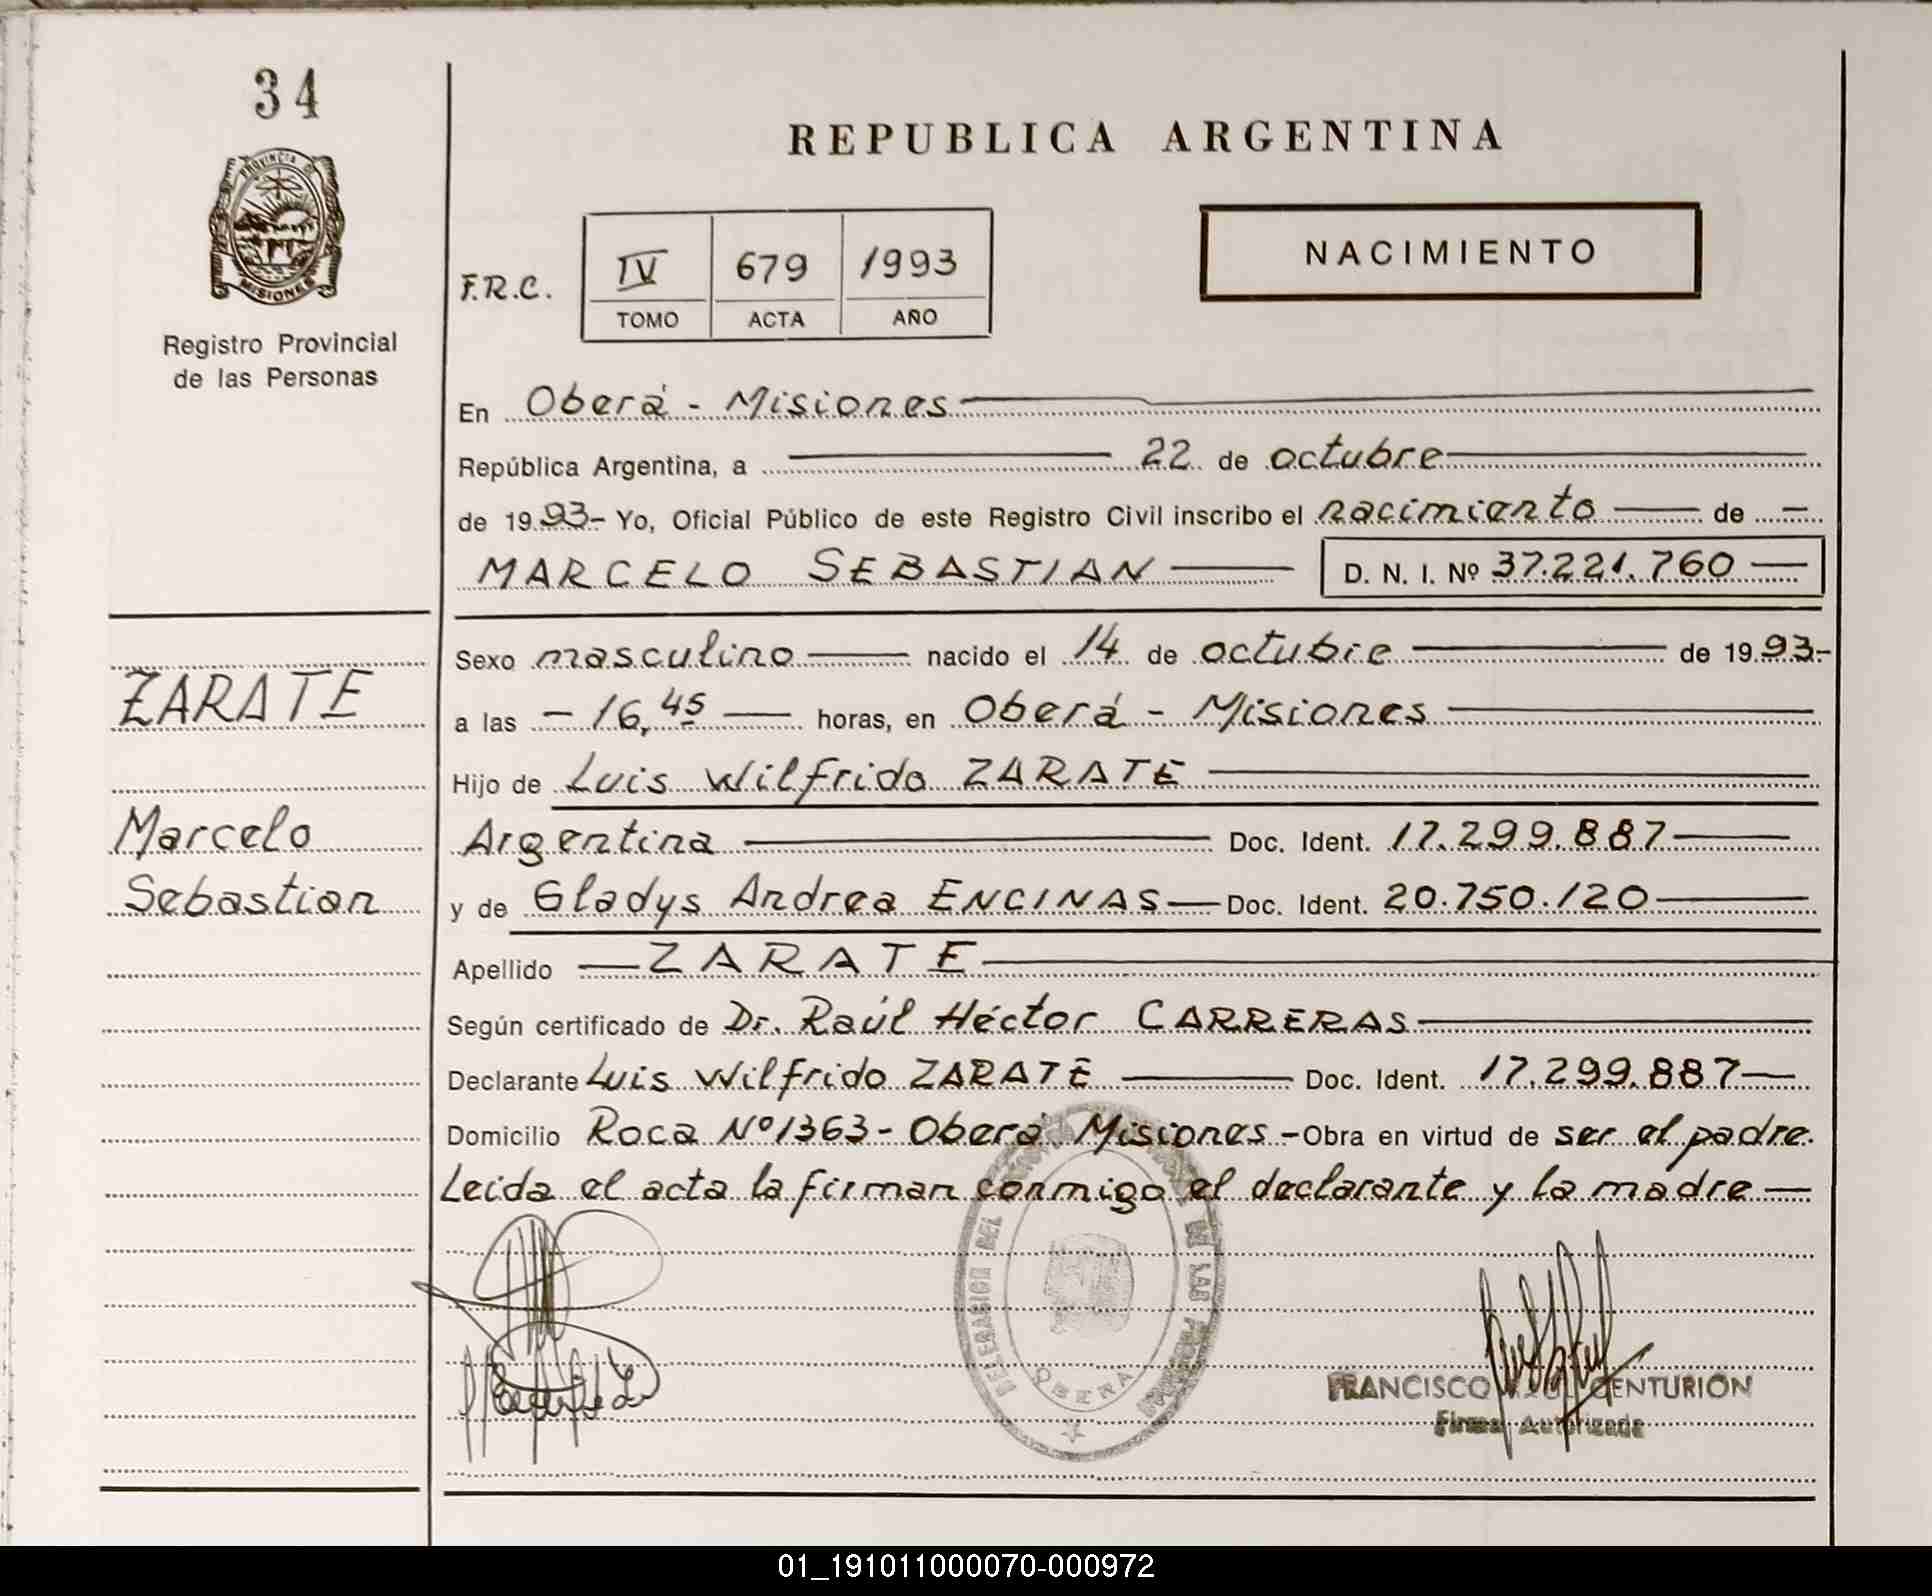 34
PROVINCIA DE
MISIONES
Registro Provincial
de las Personas
REPUBLICA ARGENTINA
NACIMIENTO
F.R.C.
IV 679 1993
TOMO ACTA AÑO
En Oberá - Misiones
República Argentina, a 22 de octubre
de 1993- Yo, Oficial Público de este Registro Civil inscribo el nacimiento de -
MARCELO SEBASTIAN D. N. I. Nº 37.221.760
ZARATE
Marcelo
Sebastian
Sexo masculino nacido el 14 de octubre de 1993-
a las - 16,45 horas, en Oberá - Misiones
Hijo de Luis Wilfrido ZARATE
Argentina Doc. Ident. 17.299.887
y de Gladys Andrea ENCINAS Doc. Ident. 20.750.120
Apellido ZARATE
Según certificado de Dr. Raúl Héctor CARRERAS
Declarante Luis Wilfrido ZARATE Doc. Ident. 17.299.887
Domicilio Roca Nº 1363- Oberá Misiones - Obra en virtud de ser el padre.
Leída el acta la firman conmigo el declarante y la madre
DELEGACION DEL DE LAS PERSONAS
OBERA
FRANCISCO CENTURION
Firma Autorizada
01_191011000070-000972